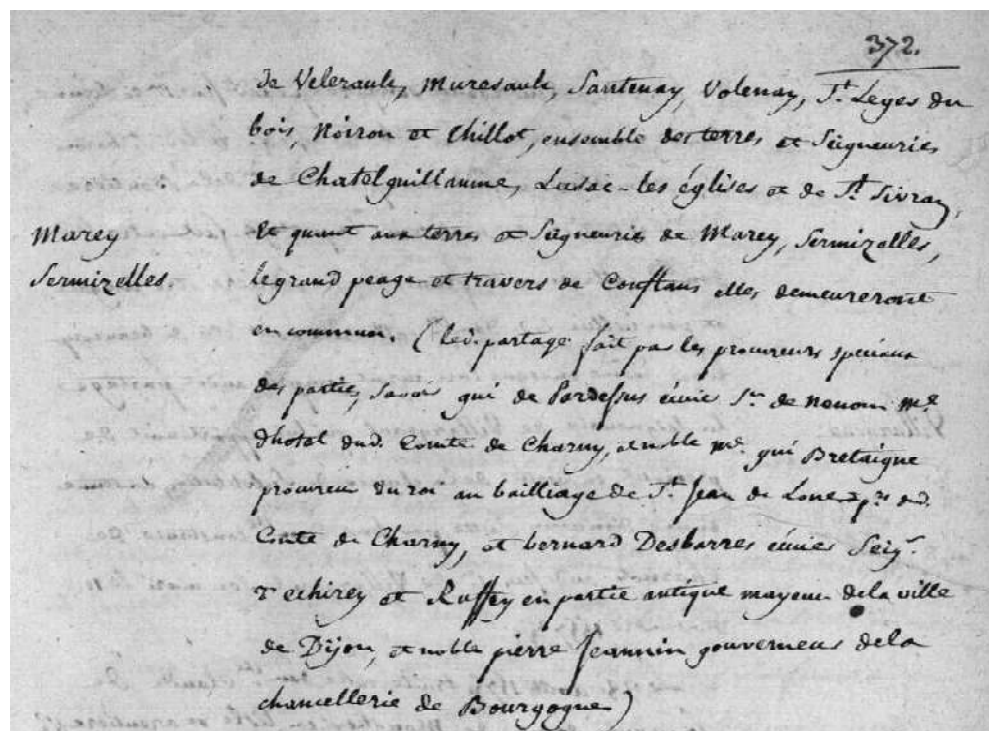 372.
de Velerault, Muresault, Santenay, Volenay, St. Leger du
bois, Noiron et Chillot, ensemble des terres et Seigneuries
de Chatelguillaume, Lusac-les églises et de St. Sivran,
Marey
Et quant aux terres et Seigneuries de Marey, Sermizelles,
Sermizelles.
le grand peage et travers de Conflans elles demeureront
en commun. (led. partage fait par les procureurs speciaux
des parties, savoir gui de Pardessus écuier Sr. de Nenon Me.
dhotel dud. Comte de Charny, et noble Me. gui Bretaigne
procureur du roi au bailliage de St. Jean de Lone dud.
Comte de Charny, et bernard Desbarres écuier Seigr.
Techirey et Ruffey en partie antique mayeur de la ville
de Dijon, et noble pierre Jeannin gouverneur de la
chancellerie de Bourgogne)